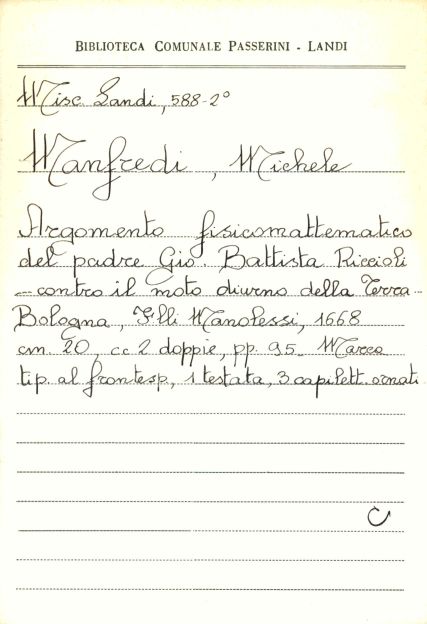 BIBLIOTECA COMUNALE PASSERINI - LANDI
Misc. Landi, 588-2°
Manfredi, Michele
Argomento fisicomattematico
del padre Gio. Battista Riccioli
contro il moto diurno della Terra -
Bologna, F.lli Manolessi, 1668
cm. 20, cc 2 doppie, pp. 95. Marca
tip. al frontesp., 1 testata, 3 capilett. ornati
C